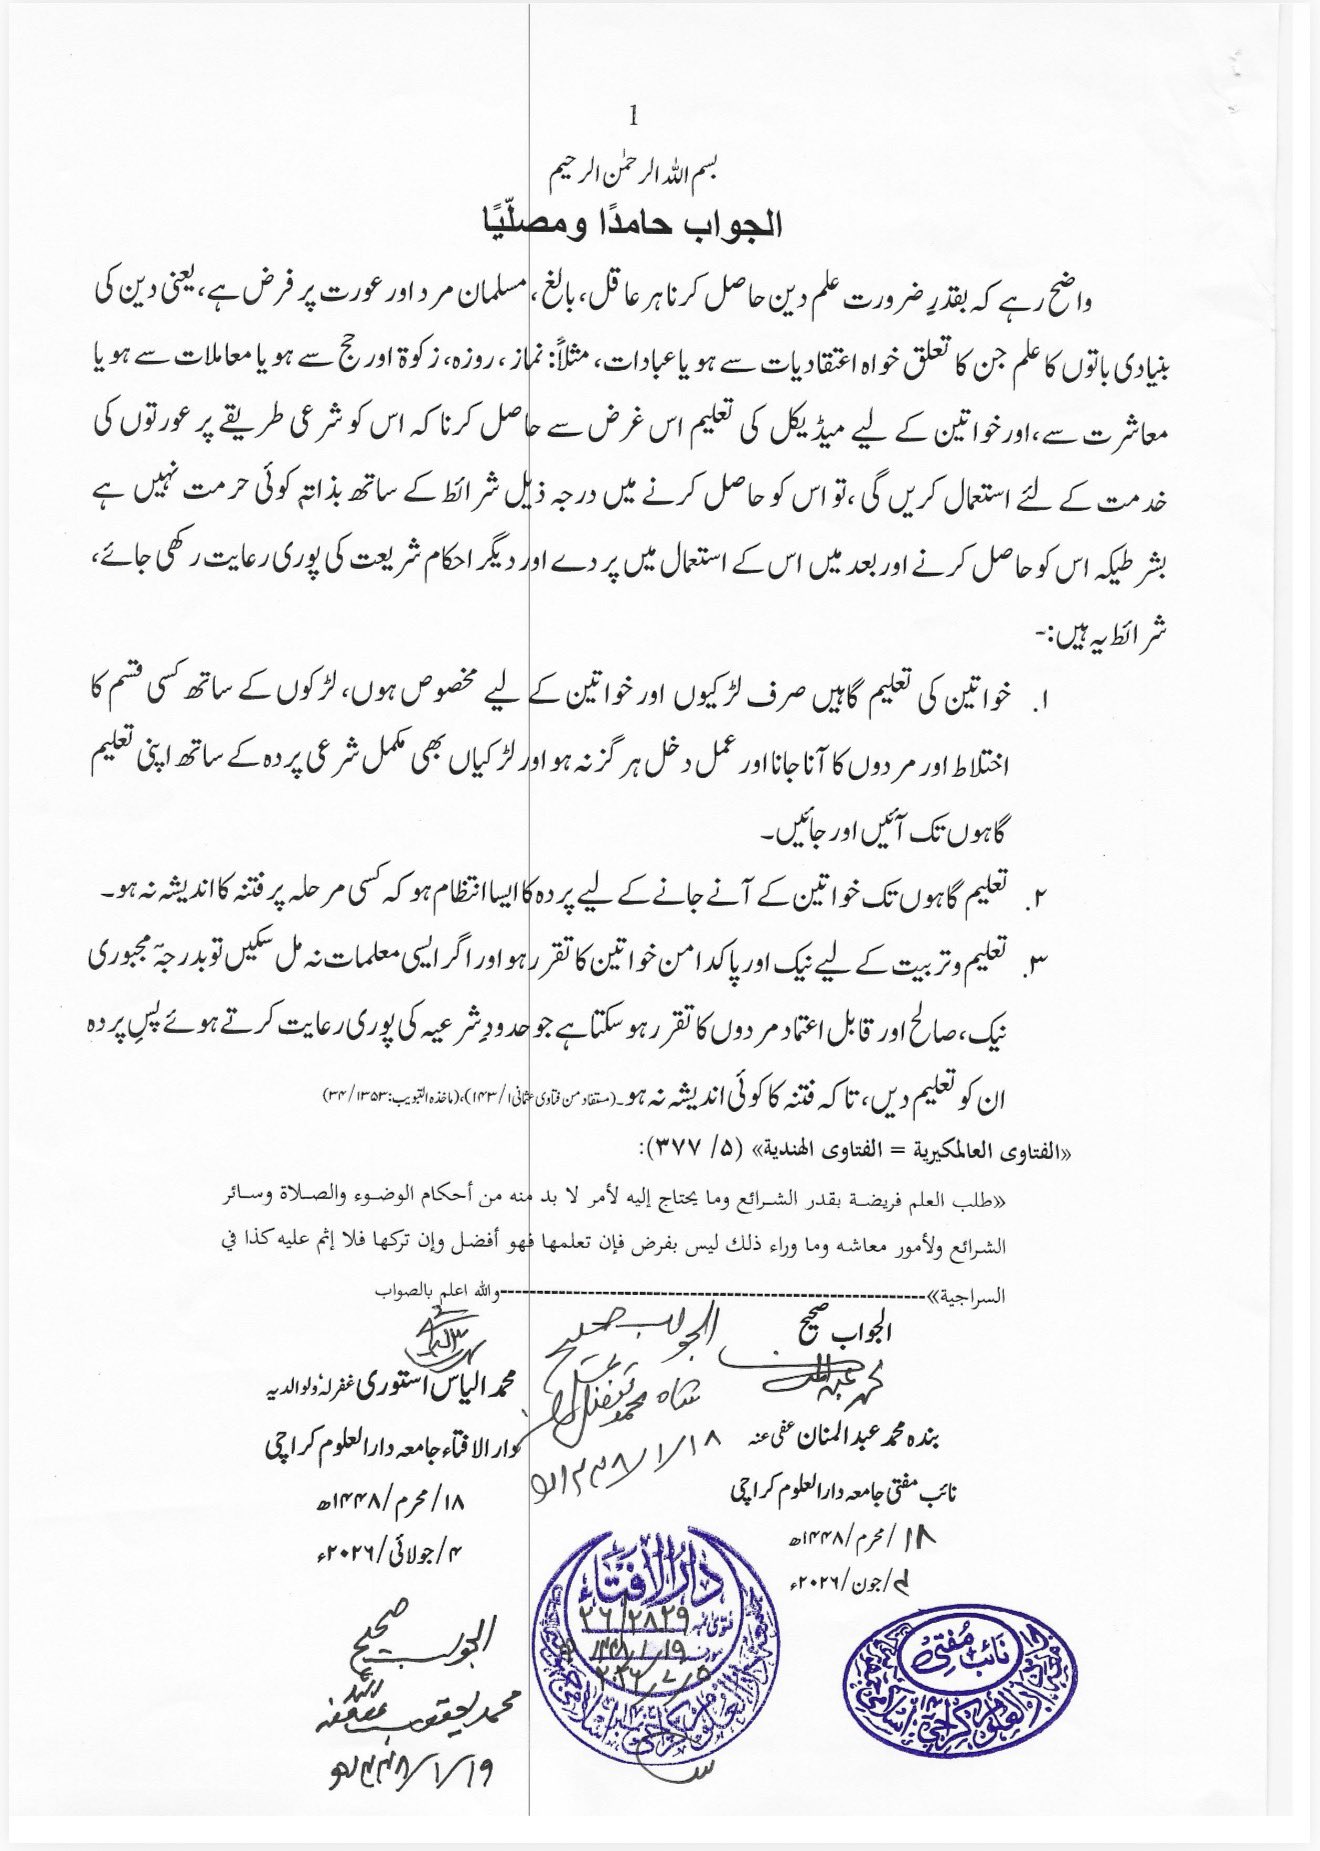 1
بسم اللہ الرحمٰن الرحیم
الجواب حامدًا ومصلّیًا
واضح رہے کہ بقدرِ ضرورت علم دین حاصل کرنا ہر عاقل، بالغ، مسلمان مرد اور عورت پر فرض ہے، یعنی دین کی
بنیادی باتوں کا علم جن کا تعلق خواہ اعتقادیات سے ہو یا عبادات، مثلاً: نماز، روزہ، زکوۃ اور حج سے ہو یا معاملات سے ہو یا
معاشرت سے، اور خواتین کے لیے میڈیکل کی تعلیم اس غرض سے حاصل کرنا کہ اس کو شرعی طریقے پر عورتوں کی
خدمت کے لئے استعمال کریں گی، تو اس کو حاصل کرنے میں درجہ ذیل شرائط کے ساتھ بذاتہ کوئی حرمت نہیں ہے
بشرطیکہ اس کو حاصل کرنے اور بعد میں اس کے استعمال میں پردے اور دیگر احکام شریعت کی پوری رعایت رکھی جائے،
شرائط یہ ہیں:-
۱. خواتین کی تعلیم گاہیں صرف لڑکیوں اور خواتین کے لیے مخصوص ہوں، لڑکوں کے ساتھ کسی قسم کا
اختلاط اور مردوں کا آنا جانا اور عمل دخل ہرگز نہ ہو اور لڑکیاں بھی مکمل شرعی پردہ کے ساتھ اپنی تعلیم
گاہوں تک آئیں اور جائیں۔
۲. تعلیم گاہوں تک خواتین کے آنے جانے کے لیے پردہ کا ایسا انتظام ہو کہ کسی مرحلہ پر فتنہ کا اندیشہ نہ ہو۔
۳. تعلیم و تربیت کے لیے نیک اور پاکدامن خواتین کا تقرر ہو اور اگر ایسی معلمات نہ مل سکیں تو بدرجۂ مجبوری
نیک، صالح اور قابل اعتماد مردوں کا تقرر ہو سکتا ہے جو حدودِ شرعیہ کی پوری رعایت کرتے ہوئے پسِ پردہ
ان کو تعلیم دیں، تاکہ فتنہ کا کوئی اندیشہ نہ ہو۔ (مستفاد من فتاوی عثمانی ۱/۱۴۳)، (ماخذہ التبویب: ۱۳۵۳/۳۴)
«الفتاوى العالمكيرية = الفتاوى الهندية» (۵/ ۳۷۷):
«طلب العلم فريضة بقدر الشرائع وما يحتاج إليه لأمر لا بد منه من أحكام الوضوء والصلاة وسائر
الشرائع ولأمور معاشه وما وراء ذلك ليس بفرض فإن تعلمها فهو أفضل وإن تركها فلا إثم عليه كذا في
السراجية»----------واللہ اعلم بالصواب
الجواب صحیح
الجواب صحیح
بندہ محمد عبدالمنان عفی عنہ
نائب مفتی جامعہ دارالعلوم کراچی
۱۸/محرم/۱۴۴۸ھ
۴/جون/۲۰۲۶ء
شاہ محمد تفضل علی
۱۸/۱/۱۴۴۸ھ
محمد الیاس استوری غفرلہ ولوالدیہ
دارالافتاء جامعہ دارالعلوم کراچی
۱۸/محرم/۱۴۴۸ھ
۴/جولائی/۲۰۲۶ء
الجواب صحیح
محمد یعقوب عفی عنہ
۱۹/۱/۱۴۴۸ھ
دار الافتاء
فتویٰ نمبر ۲۶/۲۸۲۹
۱۹/۱/۱۴۴۸
۵/۷/۲۰۲۶
نائب مفتی